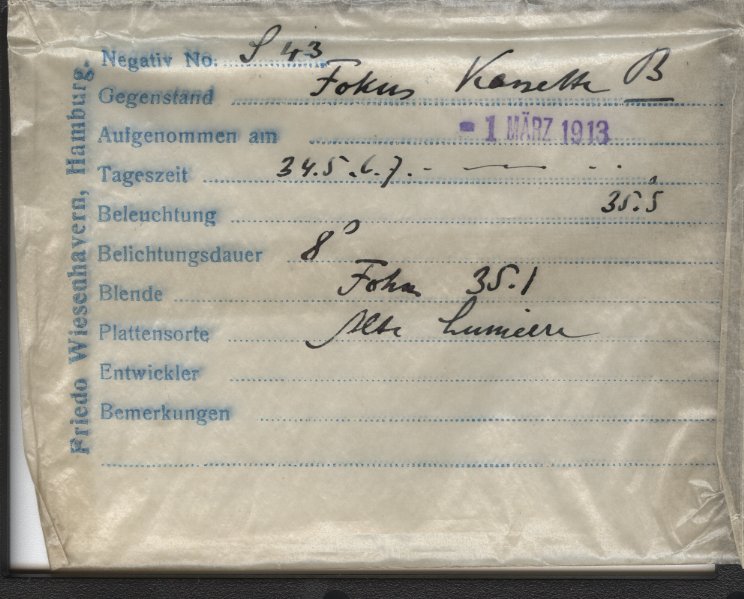 Friedo Wiesenhavern, Hamburg.
Negativ No. S 43
Gegenstand Fokus Kassette B
Aufgenommen am - 1 MÄRZ 1913
Tageszeit 34.5.6.7. - — ..
Beleuchtung 35.5
Belichtungsdauer 8s
Blende Fokus 35.1
Plattensorte Alte Lumiere
Entwickler
Bemerkungen